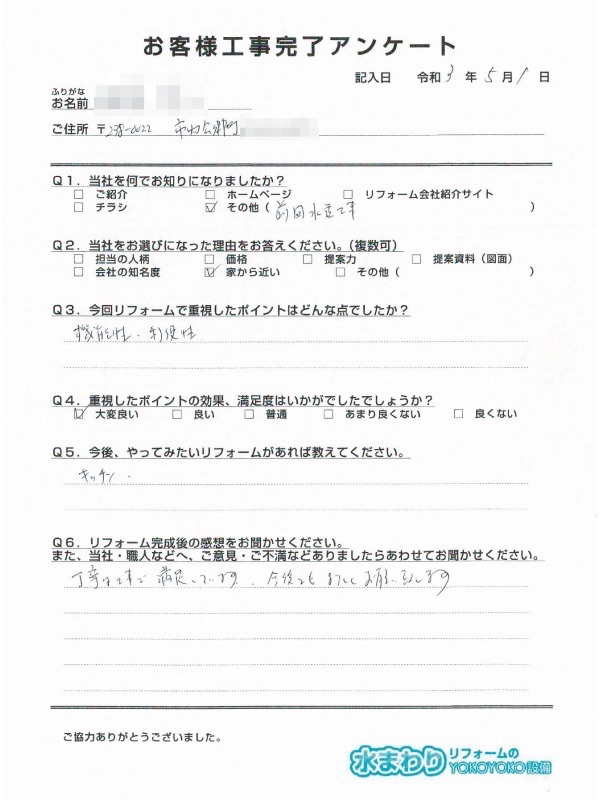 お客様工事完了アンケート
記入日 令和 3 年 5 月 1 日
ふりがな
お名前
ご住所 〒238-0022
Q1．当社を何でお知りになりましたか？
□ ご紹介 □ ホームページ □ リフォーム会社紹介サイト
□ チラシ ☑ その他（ 前回水道工事 ）
Q2．当社をお選びになった理由をお答えください。（複数可）
□ 担当の人柄 □ 価格 □ 提案力 □ 提案資料（図面）
□ 会社の知名度 ☑ 家から近い □ その他（ ）
Q3．今回リフォームで重視したポイントはどんな点でしたか？
機能性・利便性
Q4．重視したポイントの効果、満足度はいかがでしたでしょうか？
☑ 大変良い □ 良い □ 普通 □ あまり良くない □ 良くない
Q5．今後、やってみたいリフォームがあれば教えてください。
キッチン．
Q6．リフォーム完成後の感想をお聞かせください。
また、当社・職人などへ、ご意見・ご不満などありましたらあわせてお聞かせください。
丁寧な工事で満足しています．今後ともよろしくお願いします
ご協力ありがとうございました。
水まわりリフォームのYOKOYOKO設備